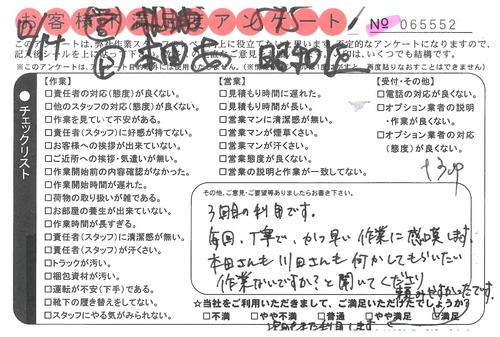 お客様不満足度アンケート
No 065552
このアンケートは、弊社作業スタッフの
※このアンケートは、
チェックリスト
【作業】
□責任者の対応(態度)が良くない。
□他のスタッフの対応(態度)が良くない。
□作業を見ていて不安がある。
□責任者(スタッフ)に好感が持てない。
□お客様への挨拶が出来ていない。
□ご近所への挨拶・気遣いが無い。
□作業開始前の内容確認がなかった。
□作業開始時間が遅れた。
□荷物の取り扱いが雑である。
□お部屋の養生が出来ていない。
□作業時間が長すぎる。
□責任者(スタッフ)に清潔感が無い。
□責任者(スタッフ)が汗くさい。
□トラックが汚い。
□梱包資材が汚い。
□運転が不安(下手)である。
□靴下の履き替えをしてない。
□スタッフにやる気がみられない。
【営業】
□見積もり時間に遅れた。
□見積もり時間が長い。
□営業マンに清潔感が無い。
□営業マンが煙草くさい。
□営業マンが汗くさい。
□営業態度が良くない。
□営業の説明と作業が一致してない。
【受付・その他】
□電話の対応が良くない。
□オプション業者の説明
・作業が良くない。
□オプション業者の対応
(態度)が良くない。
その他、ご意見・ご要望等ありましたらお書き下さい。
3回目の利用です。
毎回、丁寧で、かつ早い作業に感謝します。
本田さんも川田さんも何かしてもらいたい
作業ないですか?と聞いてくださり
頼みやすかったです。
☆当社をご利用いただきまして、ご満足いただけたでしょうか
□不満 □やや不満 □普通 □やや満足 ☑満足
また利用します